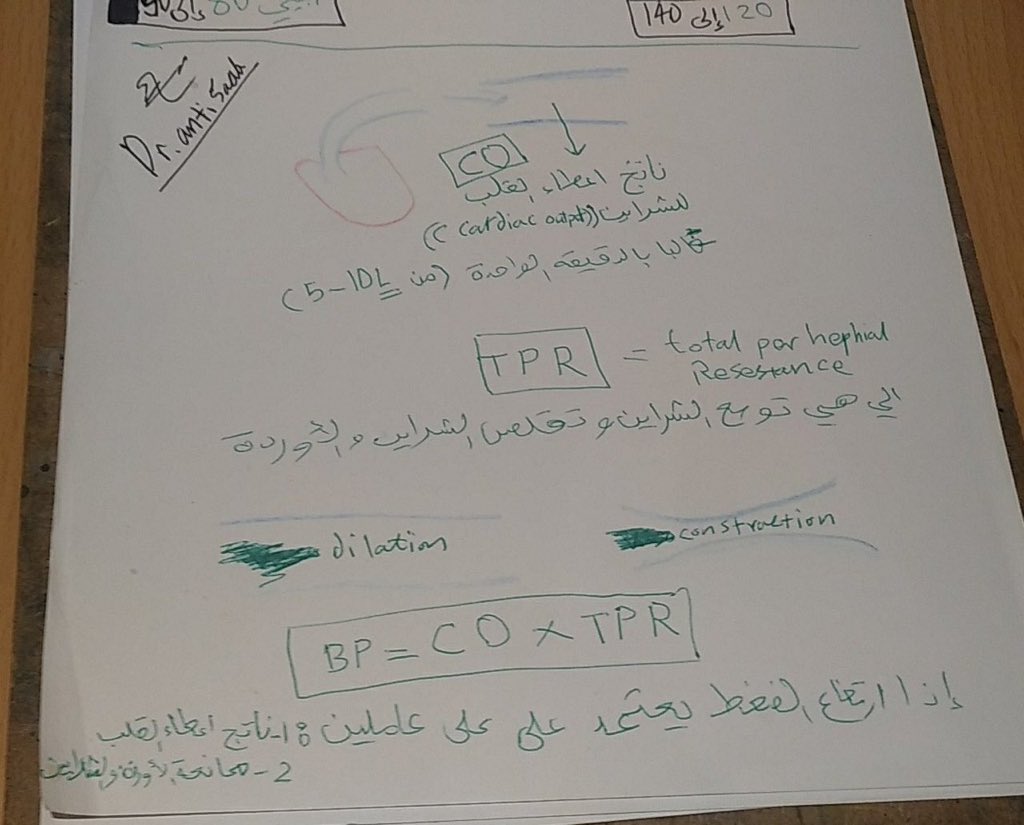 80 إلى 90
120 إلى 140
Dr. anti Saab
CO
ناتج اعطاء القلب
للشراين ((cardiac output))
غالبا بالدقيقه الواحدة (من 5-10L)
TPR = total parhephial
Resestance
الي هي توسع الشراين و تقلص الشراين و الأوردة
dilation
constraction
BP = CO × TPR
إذا ارتفاع الضغط يعتمد على على عاملين: 1- ناتج اعطاء القلب
2- ممانعة الأوردة والشراين